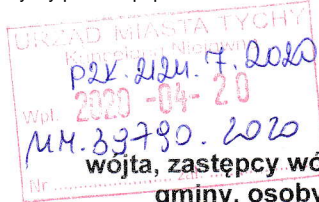 URZĄD MIASTA TYCHY
PZK. 2124. 7. 2020
Wpł. 2020 -04- 20
39790. 2020
wójta, zastępcy wó
Nr
gminy, osoby